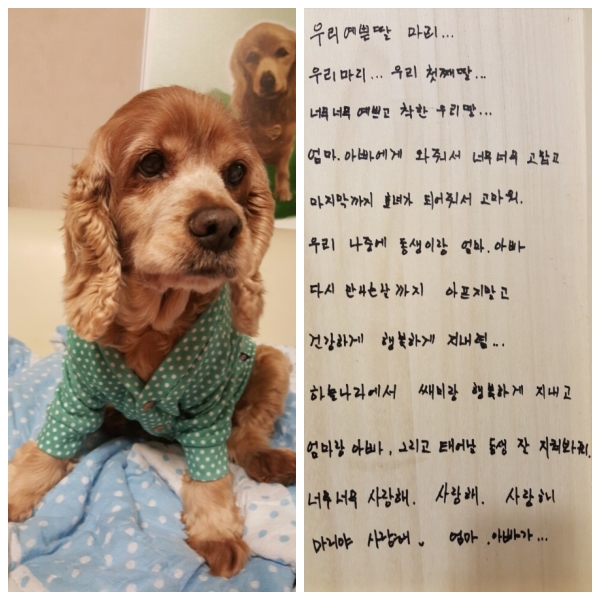 우리 예쁜딸 마리...
우리마리... 우리 첫째딸...
너무너무 예쁘고 착한 우리딸...
엄마.아빠에게 와줘서 너무너무 고맙고
마지막까지 효녀가 되어줘서 고마워.
우리 나중에 동생이랑 엄마.아빠
다시 만나는날까지 아프지말고
건강하게 행복하게 지내렴...
하늘나라에서 쌔미랑 행복하게 지내고
엄마랑 아빠, 그리고 태어날 동생 잘 지켜봐줘.
너무너무 사랑해. 사랑해. 사랑해
마리야 사랑해. 엄마.아빠가...